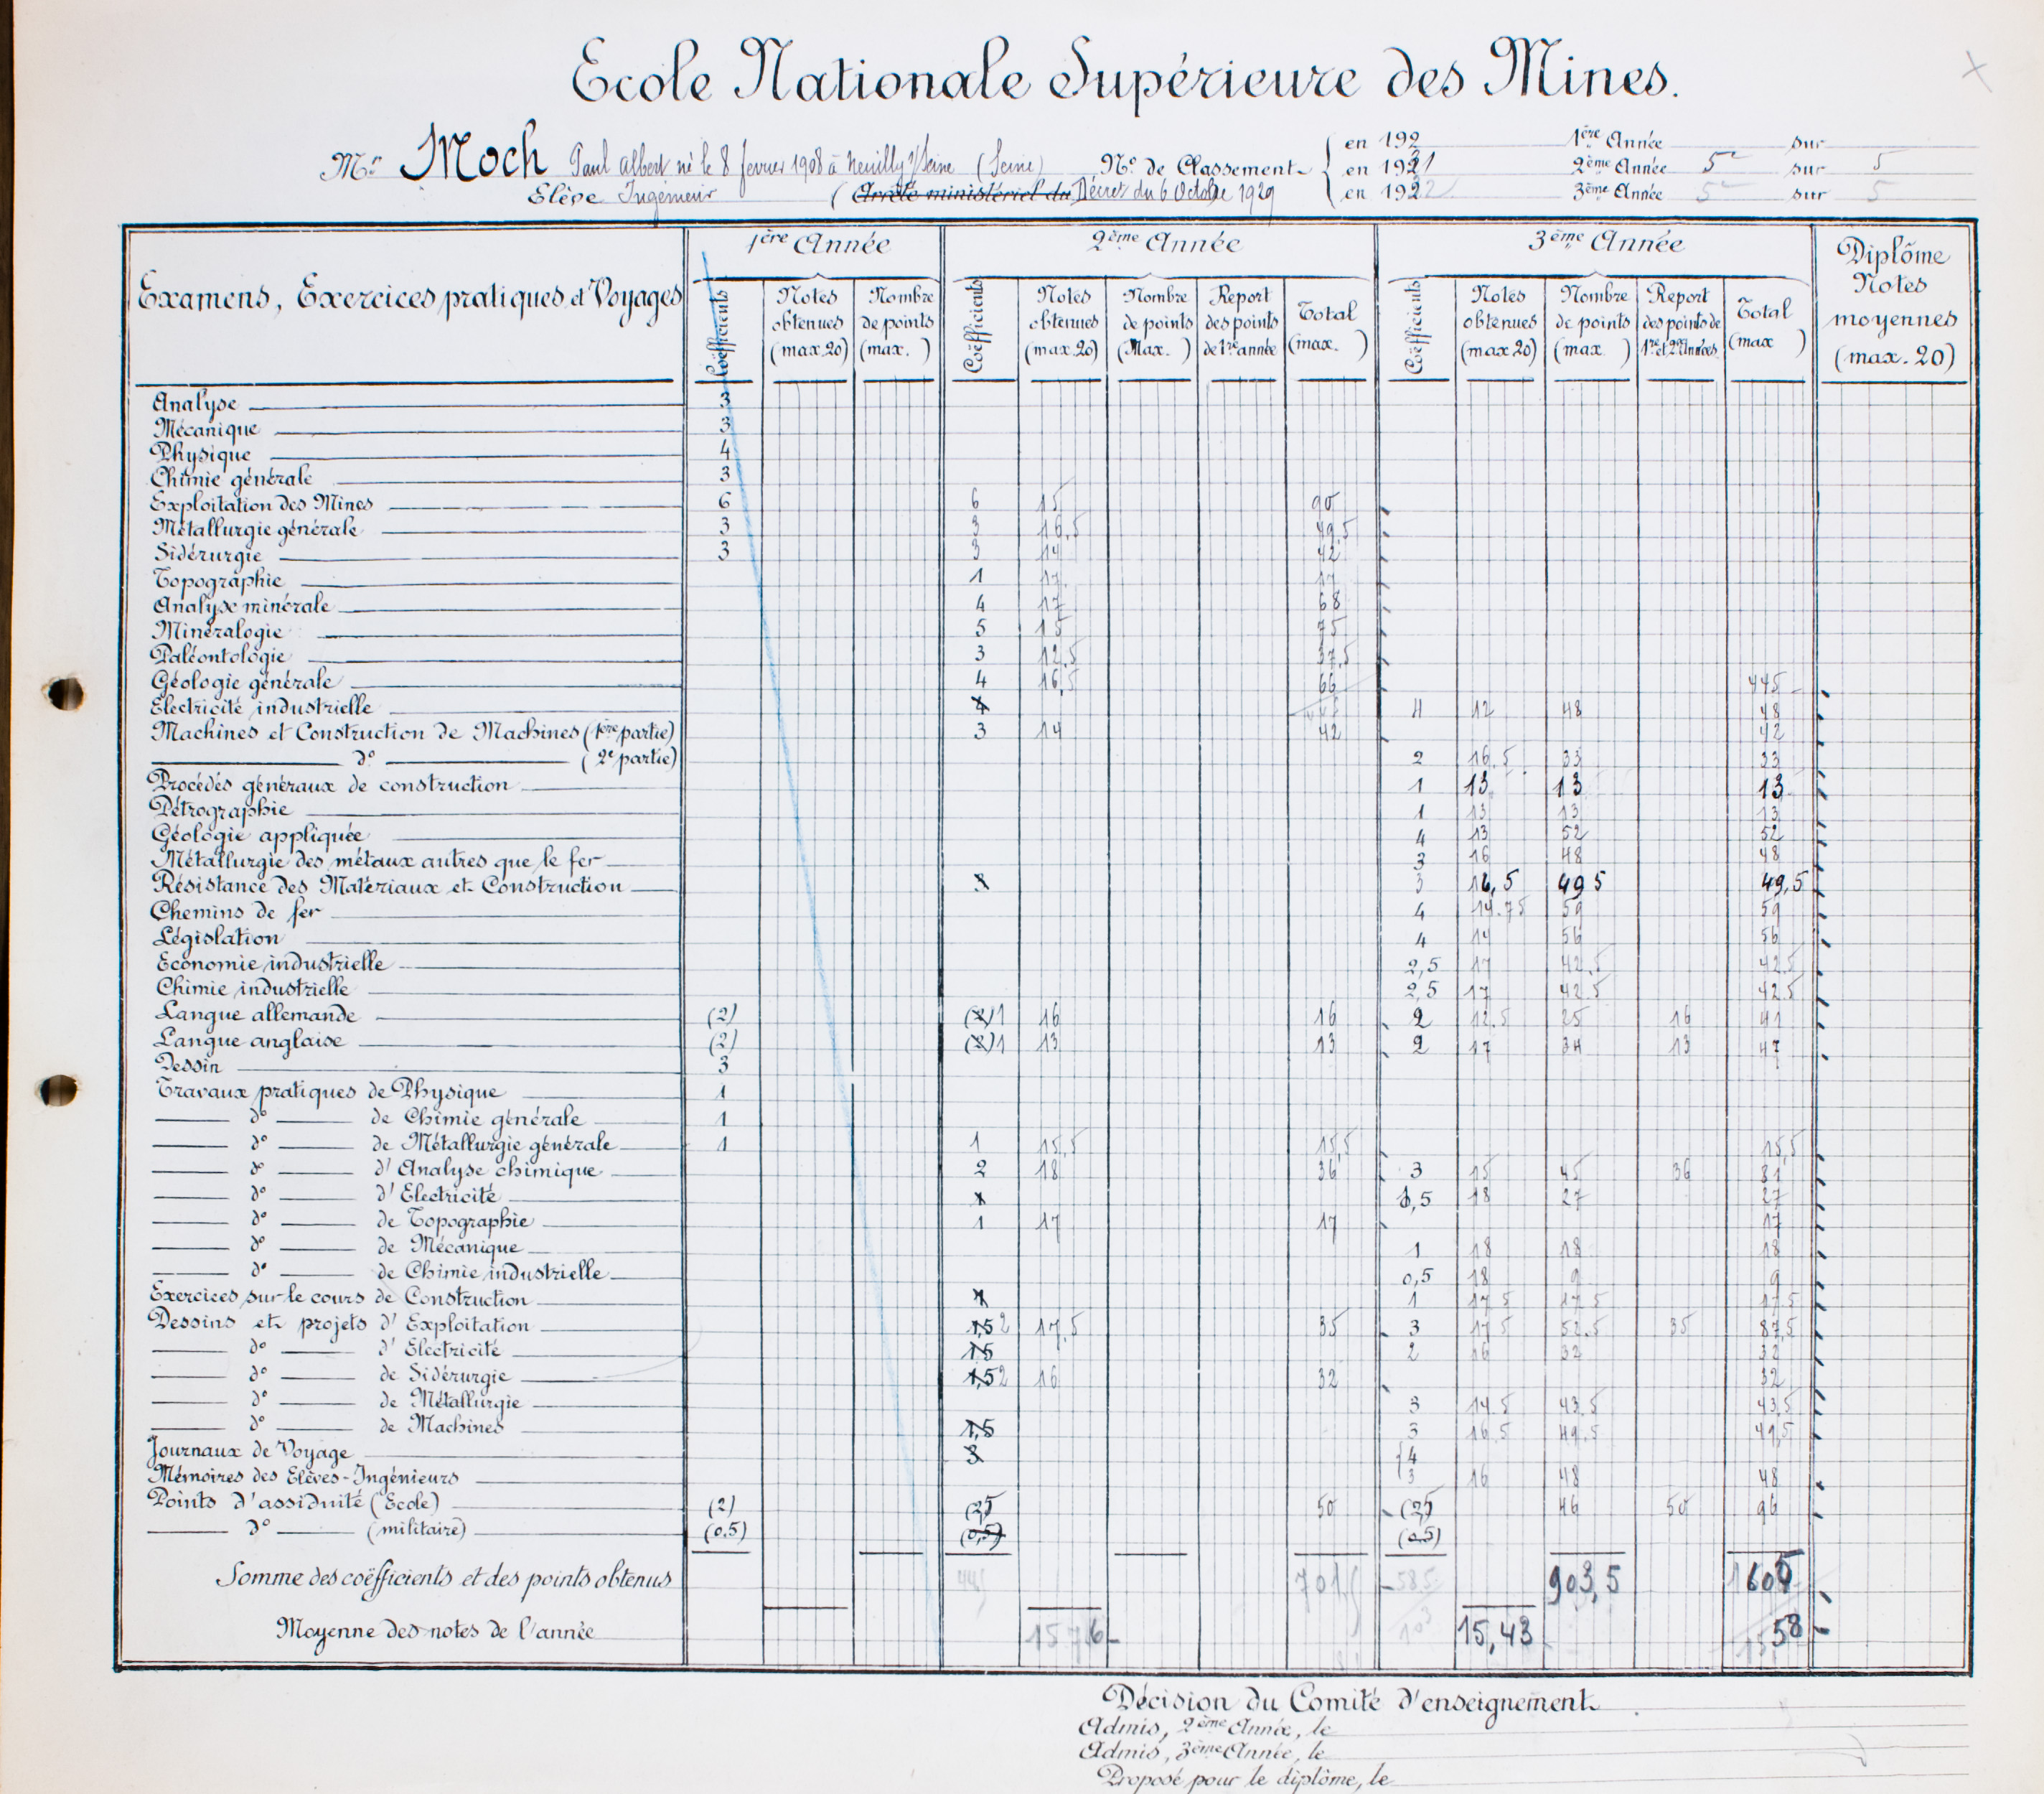 Ecole Nationale Supérieure des Mines.
Mr Moch Paul Albert né le 8 février 1908 à Neuilly s/Seine (Seine)
Elève Ingénieur (Arrêté ministériel du Décret du 6 Octobre 1929
No de Classement
en 192 1ère Année sur
en 1931 2ème Année 5e sur 5
en 1932 3ème Année 5e sur 5
Examens, Exercices pratiques et Voyages 1ère Année 2ème Année 3ème Année Diplôme Notes moyennes (max. 20)
Coëfficients Notes obtenues (max 20) Nombre de points (max. )
Coëfficients Notes obtenues (max 20) Nombre de points (Max. ) Report des points de 1re année Total (max. )
Coëfficients Notes obtenues (max 20) Nombre de points (max ) Report des points de 1re et 2e Années Total (max )
Analyse 3
Mécanique 3
Physique 4
Chimie générale 3
Exploitation des Mines 6 6 15 90
Métallurgie générale 3 3 16,5 49,5
Sidérurgie 3 3 14 42
Topographie 1 17 17
Analyse minérale 4 17 68
Minéralogie 5 15 75
Paléontologie 3 12,5 37,5
Géologie générale 4 16,5 66 445
Electricité industrielle 4 4 12 48 48
Machines et Construction de Machines (1ère partie) 3 14 42 42
do (2e partie) 2 16,5 33 33
Procédés généraux de construction 1 13 13 13
Pétrographie 1 13 13 13
Géologie appliquée 4 13 52 52
Métallurgie des métaux autres que le fer 3 16 48 48
Résistance des Matériaux et Construction 3 3 16,5 49 5 49,5
Chemins de fer 4 14.75 59 59
Législation 4 14 56 56
Economie industrielle 2,5 17 42.5 42.5
Chimie industrielle 2,5 17 42.5 42.5
Langue allemande (2) (2) 1 16 16 2 12.5 25 16 41
Langue anglaise (2) (2) 1 13 13 2 17 34 13 47
Dessin 3
Travaux pratiques de Physique 1
do de Chimie générale 1
do de Métallurgie générale 1 1 15,5 15,5 15,5
do d'Analyse chimique 2 18 36 3 15 45 36 81
do d'Electricité 1 1,5 18 27 27
do de Topographie 1 17 17 17
do de Mécanique 1 18 18 18
do de Chimie industrielle 0,5 18 9 9
Exercices sur le cours de Construction 1 1 17 5 17 5 17,5
Dessins et projets d'Exploitation 1,5 2 17,5 35 3 17 5 52.5 35 87,5
do d'Electricité 1,5 2 16 32 32
do de Sidérurgie 1,5 2 16 32 32
do de Métallurgie 3 14 5 43.5 43,5
do de Machines 1,5 3 16.5 49.5 49,5
Journaux de Voyage 3 4
Mémoires des Elèves-Ingénieurs 3 16 48 48
Points d'assiduité (Ecole) (2) (2,5 50 (2,5 46 50 96
do (militaire) (0,5) (0,5) (0,5)
Somme des coëfficients et des points obtenus 58,5 903,5
Moyenne des notes de l'année 103 15,43 15,58
Décision du Comité d'enseignement
Admis, 2ème Année, le
Admis, 3ème Année, le
Proposé pour le diplôme, le